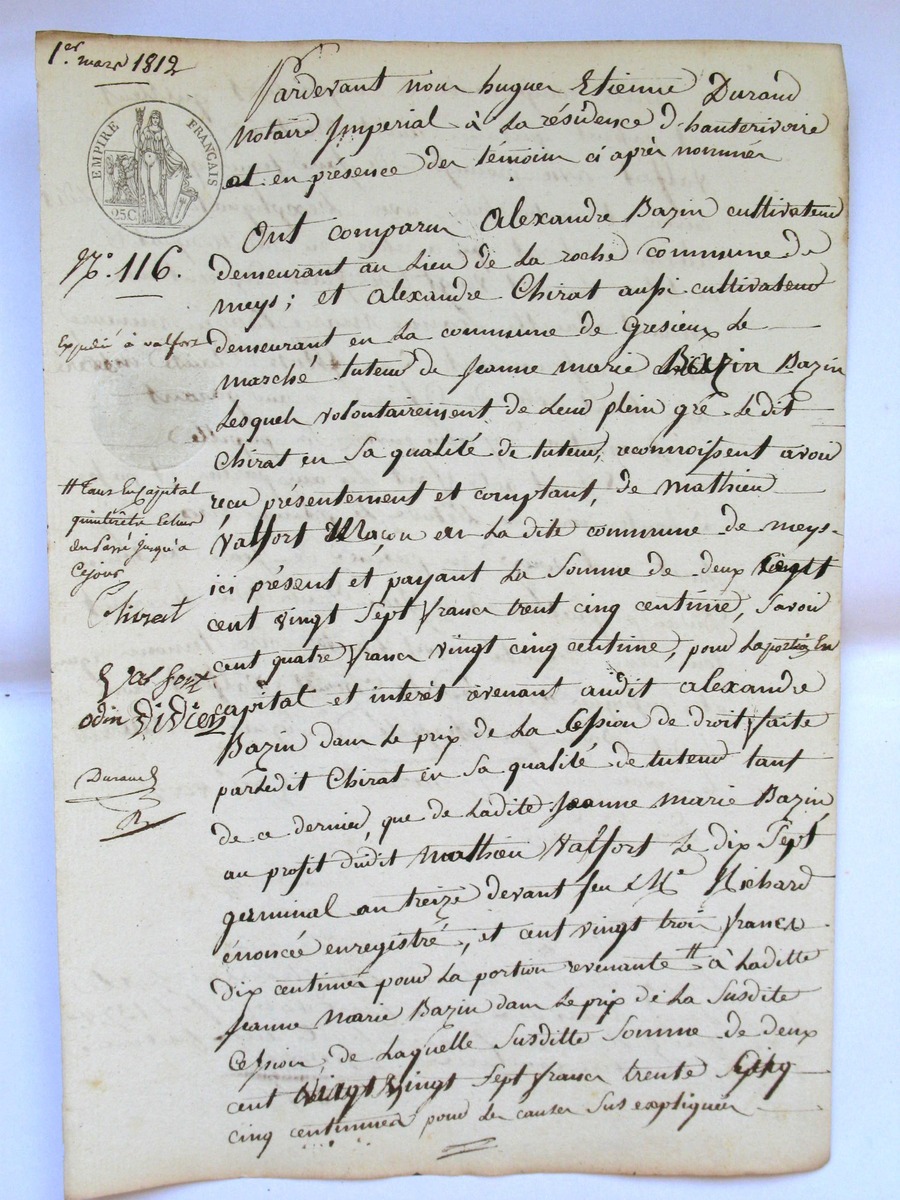 1er mars 1812
EMPIRE FRANÇAIS
25C
Pardevant nous hugues Etienne Durand
notaire Imperial à la résidence d'hauterivoire
et en présence des témoins ci après nommés
Ont comparu Alexandre Bazin cultivateur
No. 116.
demeurant au Lieu de La roche commune de
meys; et Alexandre Chirat aussi cultivateur
Expedié à valfort
demeurant en La commune de Gresieux Le
marché tuteur de Jeanne marie Bazin Bazin
Lesquels volontairement de Leur plein gré Le dit
Chirat en Sa qualité de tuteur, reconnoissent avoir
# Tans En Capital
reçu présentement et comptant, de mathieu
qu'interêts Echus
Valfort Maçon en La dite commune de meys
du Passé jusqu'a
Ce jour
ici présent et payant La Somme de deux
Chirat
cent vingt Sept francs trent cinq centime, Savoir
cent quatre francs vingt cinq centime, pour La portion En
Valfort
capital et interêt révenant audit alexandre
odin Didier
Bazin dans Le prix de La Cession de droit faite
par Ledit Chirat en Sa qualité de tuteur tant
Durand
de ce dernier, que de Ladite Jeanne marie Bazin
au profit dudit mathieu Valfort Le dix Sept
germinal an treize devant feu Me Richard
énoncée enregistré, et cent vingt trois francs
dix centimes pour La portion revenante # à Laditte
Jeanne Marie Bazin dans Le prix de La Susdite
Cession, de Laquelle Susditte Somme de deux
cent vingt Sept francs trente
cinq centimes pour les causes Sus expliquées